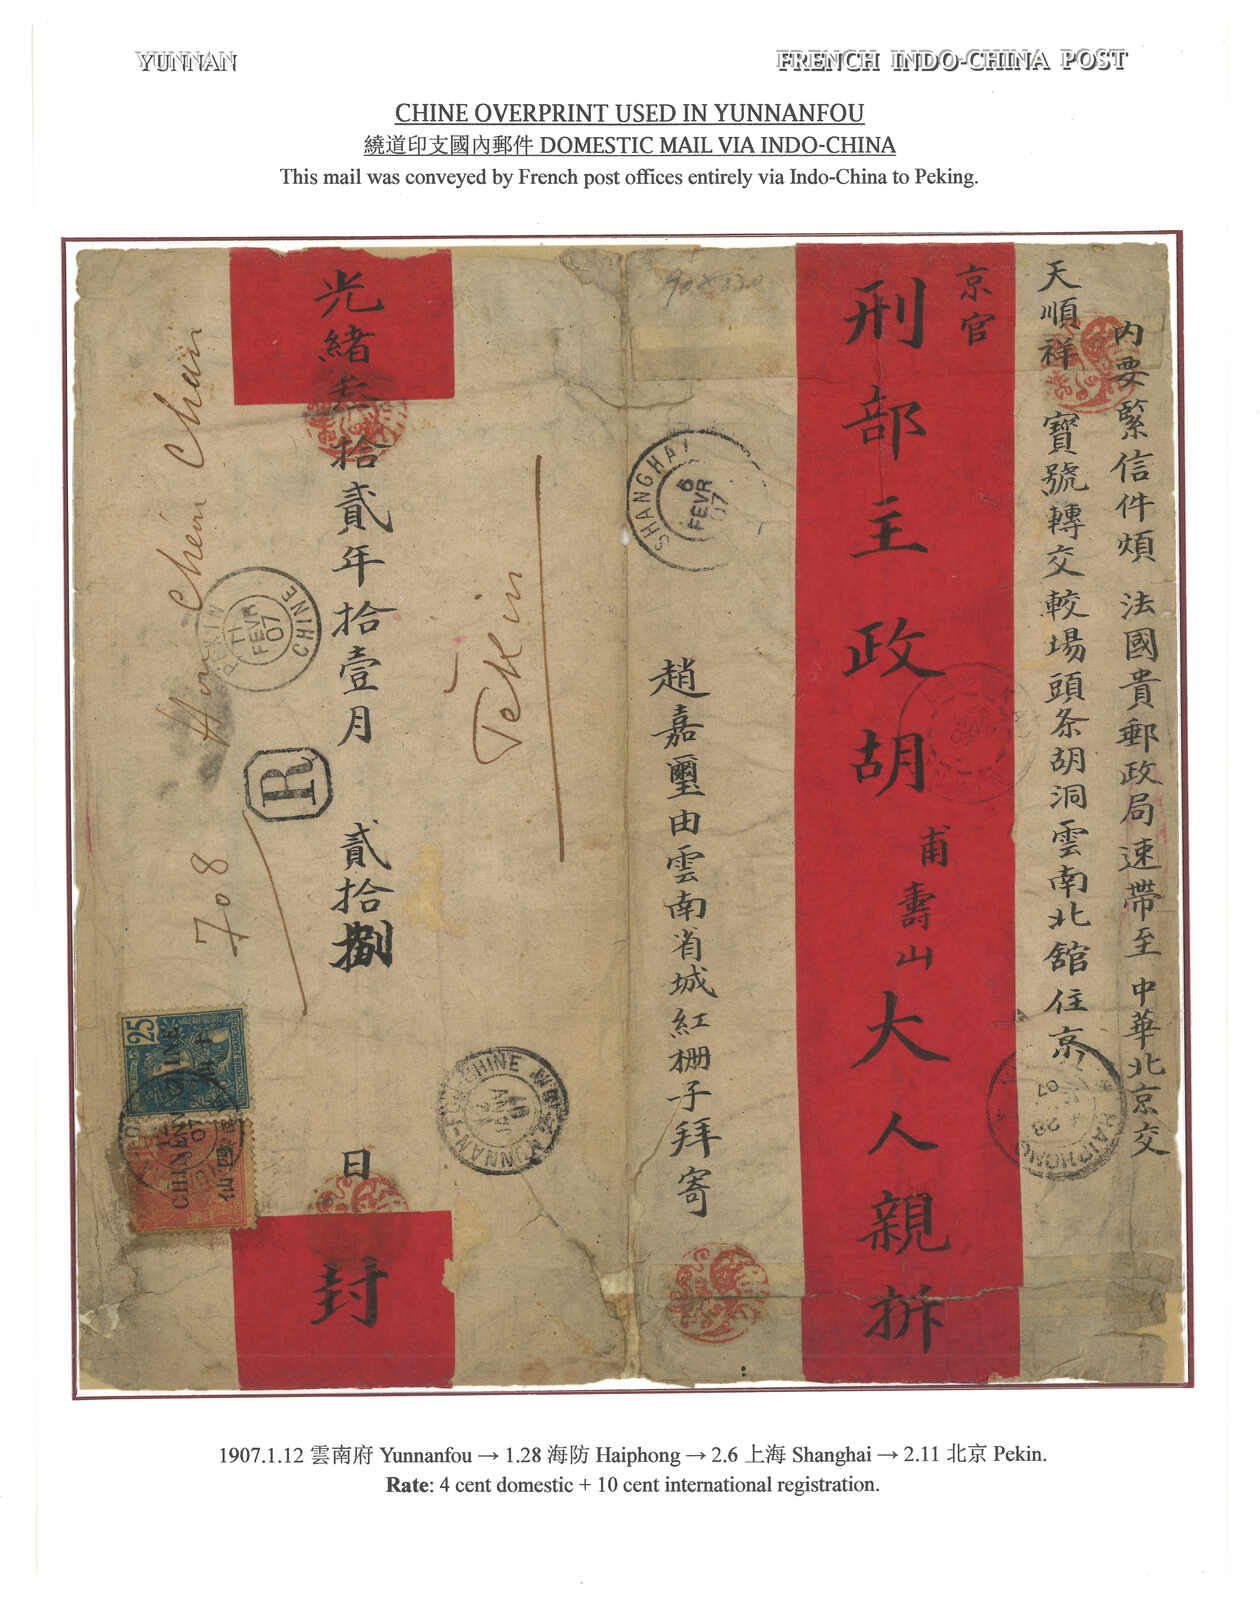 YUNNAN
FRENCH INDO-CHINA POST
CHINE OVERPRINT USED IN YUNNANFOU
繞道印支國內郵件 DOMESTIC MAIL VIA INDO-CHINA
This mail was conveyed by French post offices entirely via Indo-China to Peking.
內要緊信件煩 法國貴郵政局速帶至 中華北京交
天順祥 寶號轉交較場頭条胡洞雲南北舘住京
京官
刑部主政胡
甫壽山
大人親拆
趙嘉璽由雲南省城紅柵子拜寄
光緒叁拾貳年拾壹月 貳拾捌 日
封
SHANGHAI
6
FEVR
07
PEKIN
CHINE
11
FEVR
07
R
708
Chen Chain
Pekin
25
CHINE
CHINE
HAIPHONG
28
07
1907.1.12 雲南府 Yunnanfou → 1.28 海防 Haiphong → 2.6 上海 Shanghai → 2.11 北京 Pekin.
Rate: 4 cent domestic + 10 cent international registration.